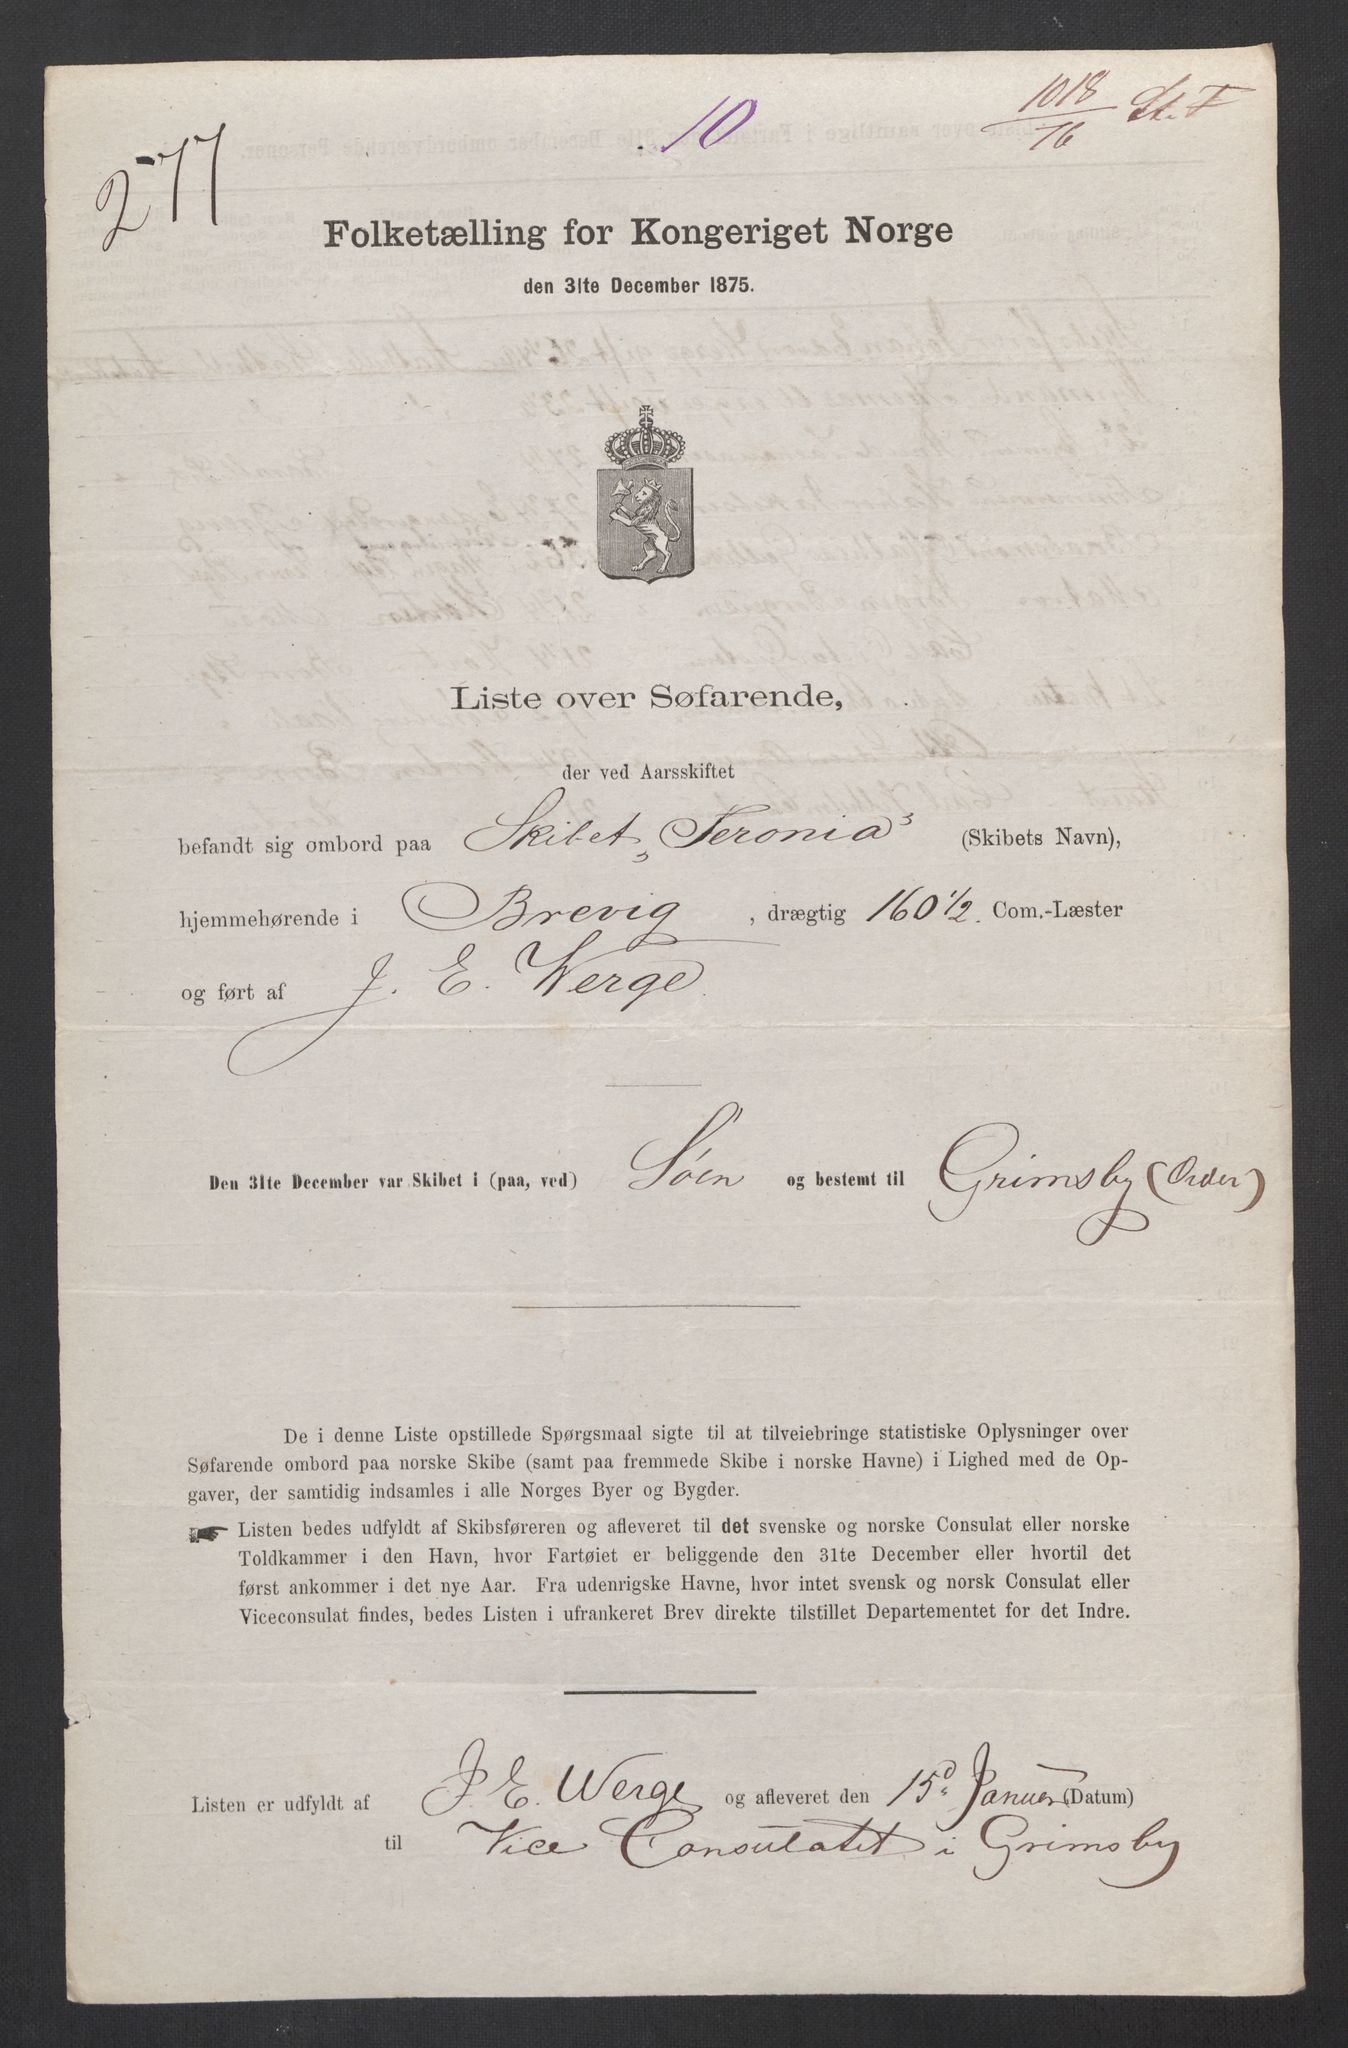 277
10
1018 St. F
76
Folketælling for Kongeriget Norge
den 31te December 1875.
Liste over Søfarende,
der ved Aarsskiftet
befandt sig ombord paa Skibet „Feronia" (Skibets Navn),
hjemmehørende i Brevig, drægtig 160 1/2 Com.-Læster
og ført af J. E. Werge.
Den 31te December var Skibet i (paa, ved) Søen og bestemt til Grimsby (Order)
De i denne Liste opstillede Spørgsmaal sigte til at tilveiebringe statistiske Oplysninger over
Søfarende ombord paa norske Skibe (samt paa fremmede Skibe i norske Havne) i Lighed med de Op-
gaver, der samtidig indsamles i alle Norges Byer og Bygder.
☛ Listen bedes udfyldt af Skibsføreren og afleveret til det svenske og norske Consulat eller norske
Toldkammer i den Havn, hvor Fartøiet er beliggende den 31te December eller hvortil det
først ankommer i det nye Aar. Fra udenrigske Havne, hvor intet svensk og norsk Consulat eller
Viceconsulat findes, bedes Listen i ufrankeret Brev direkte tilstillet Departementet for det Indre.
Listen er udfyldt af J. E. Werge og afleveret den 15d Januar (Datum)
til Vice Consulatet i Grimsby